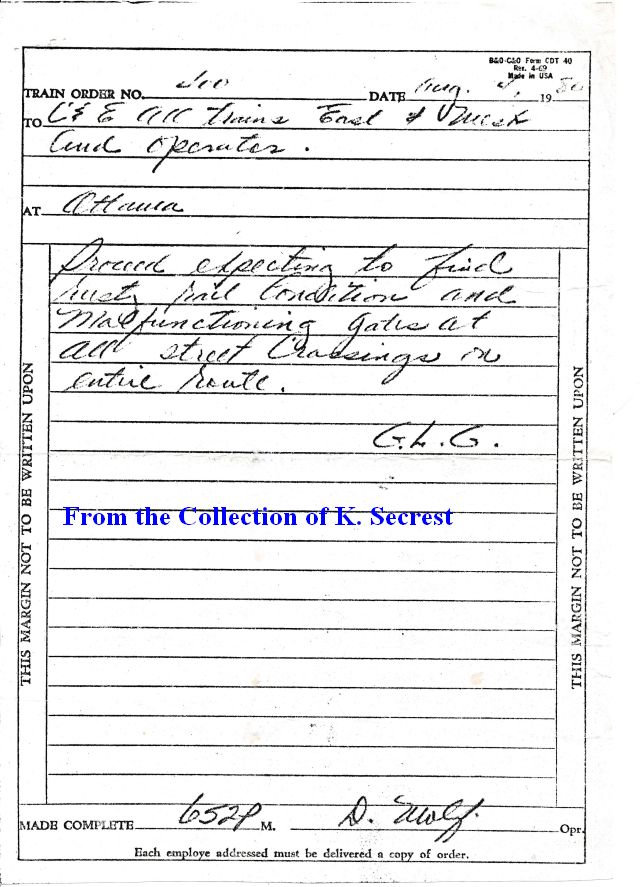 B&O-C&O Form CDT 40
Rev. 4-69
Made in USA
TRAIN ORDER NO. DATE Aug. 19 80
TO C & E All trains East & West
And Operator.
AT Ottawa
Proceed expecting to find
rusty rail condition and
Malfunctioning gates at
all street Crossings on
entire route.
G.L.G.
From the Collection of K. Secrest
THIS MARGIN NOT TO BE WRITTEN UPON
THIS MARGIN NOT TO BE WRITTEN UPON
MADE COMPLETE 652P M. D. Opr.
Each employe addressed must be delivered a copy of order.